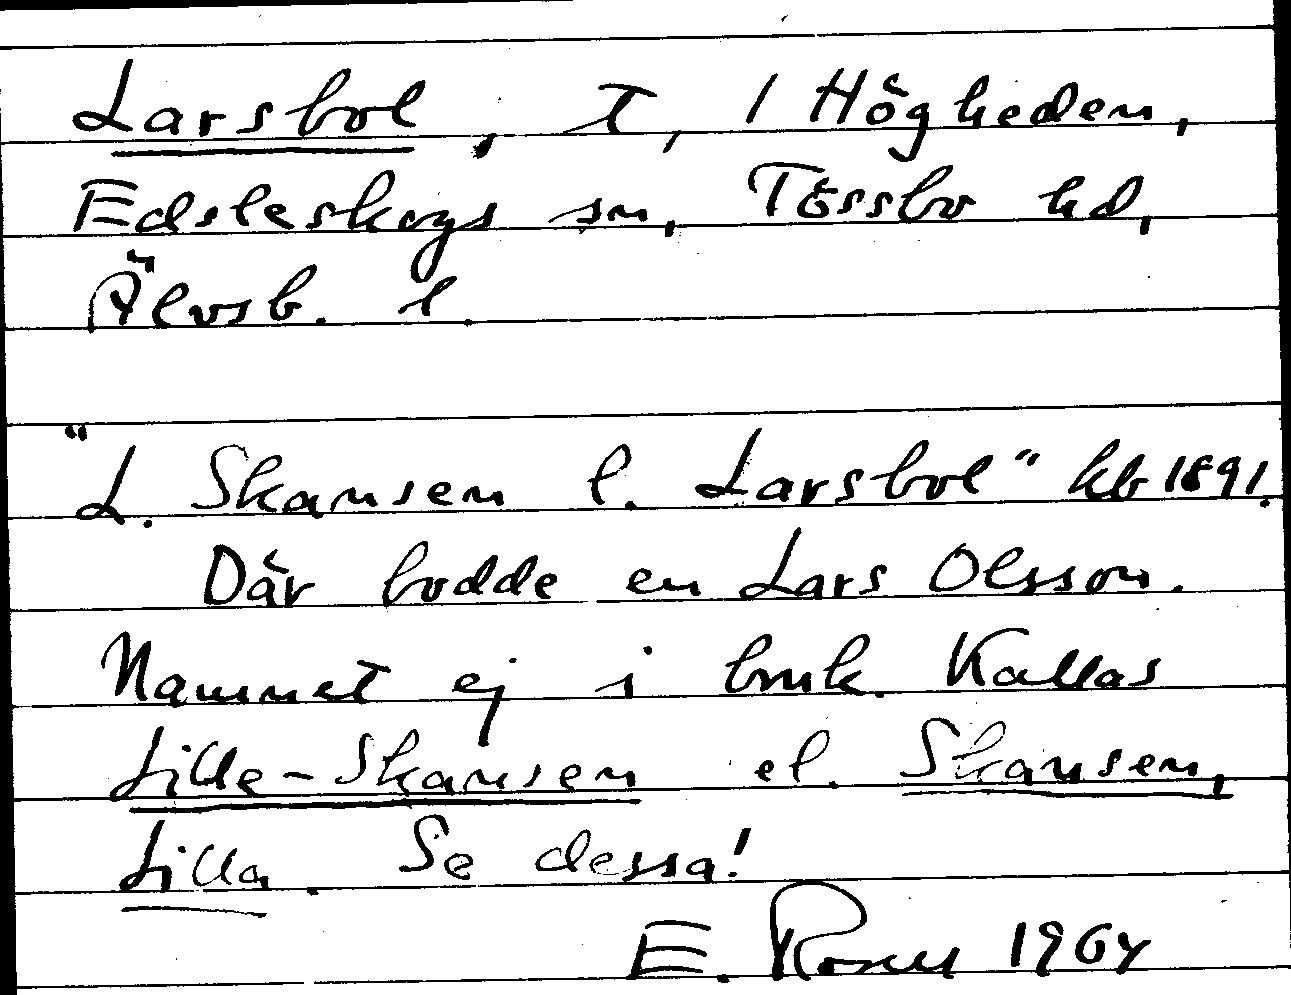 Larsbol, t, 1 Högheden,
Edsleskogs sn, Tössbo hd,
Älvsb. l.
"L. Skansen l. Larsbol" kb 1891.
Där bodde en Lars Olsson.
Namnet ej i bruk. Kallas
Lille-Skansen el. Skansen,
Lilla. Se dessa!
E. 1964